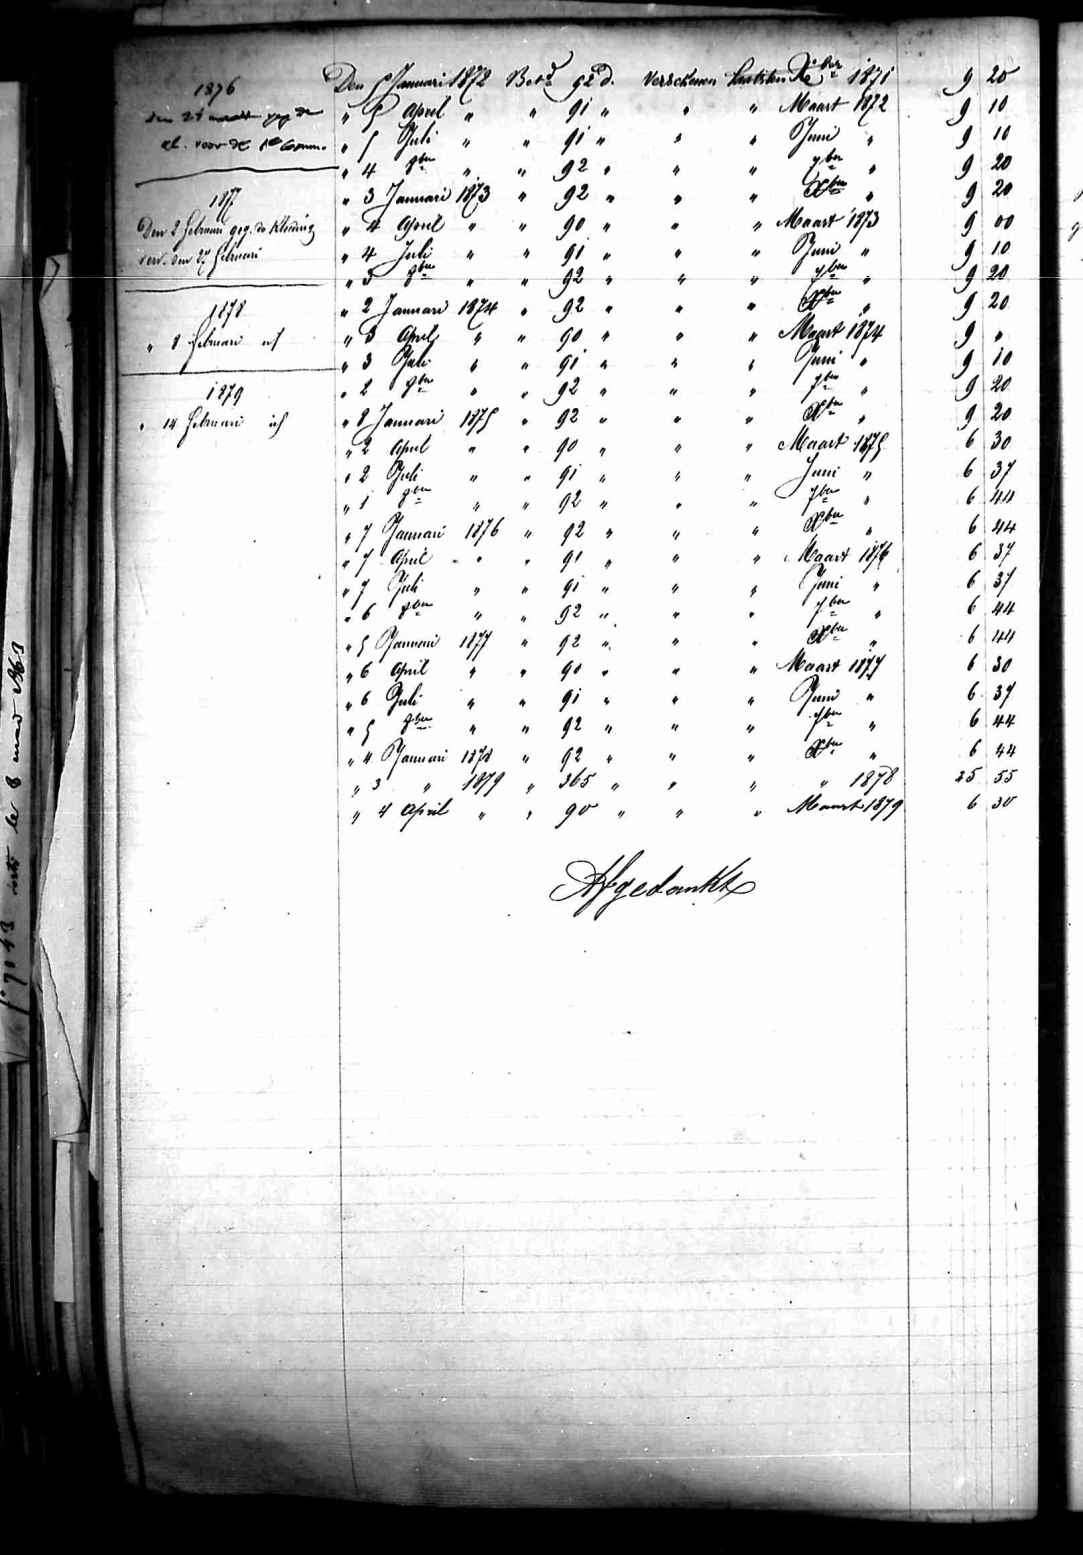 1876
den 21 maart geg. de
kl. voor de 1e Comm.
1877
Den 2 Februari geg. de Kleeding
verv. den 27 Februari
1878
" 8 Februari id
1879
" 14 Februari id
Den 5 Januari 1872 Betd 92 d. verschenen laatsten Xber 1871 9 20
" 5 April " " 91 " " " Maart 1872 9 10
" 5 Juli " " 91 " " " Juni " 9 10
" 4 8ber " " 92 " " " 7ber " 9 20
" 3 Januari 1873 " 92 " " " Xber " 9 20
" 4 April " " 90 " " " Maart 1873 9 00
" 4 Juli " " 91 " " " Juni " 9 10
" 3 8ber " " 92 " " " 7ber " 9 20
" 2 Januari 1874 " 92 " " " Xber " 9 20
" 3 April " " 90 " " " Maart 1874 9 "
" 3 Juli " " 91 " " " Juni " 9 10
" 2 8ber " " 92 " " " 7ber " 9 20
" 8 Januari 1875 " 92 " " " Xber " 9 20
" 2 April " " 90 " " " Maart 1875 6 30
" 2 Juli " " 91 " " " Juni " 6 37
" 1 8ber " " 92 " " " 7ber " 6 44
" 7 Januari 1876 " 92 " " " Xber " 6 44
" 7 April " " 91 " " " Maart 1876 6 37
" 7 Juli " " 91 " " " Juni " 6 37
" 6 8ber " " 92 " " " 7ber " 6 44
" 5 Januari 1877 " 92 " " " Xber " 6 44
" 6 April " " 90 " " " Maart 1877 6 30
" 6 Juli " " 91 " " " Juni " 6 37
" 5 8ber " " 92 " " " 7ber " 6 44
" 4 Januari 1878 " 92 " " " Xber " 6 44
" 3 " 1879 " 365 " " " " 1878 25 55
" 4 April " " 90 " " " Maart 1879 6 30
Afgedankt